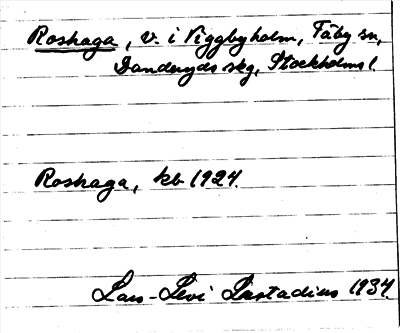 Roshaga, v. i Viggbyholm, Täby sn,
Danderyds skg, Stockholms l.
Roshaga, kb 1924.
Lars-Levi Læstadius 1934.